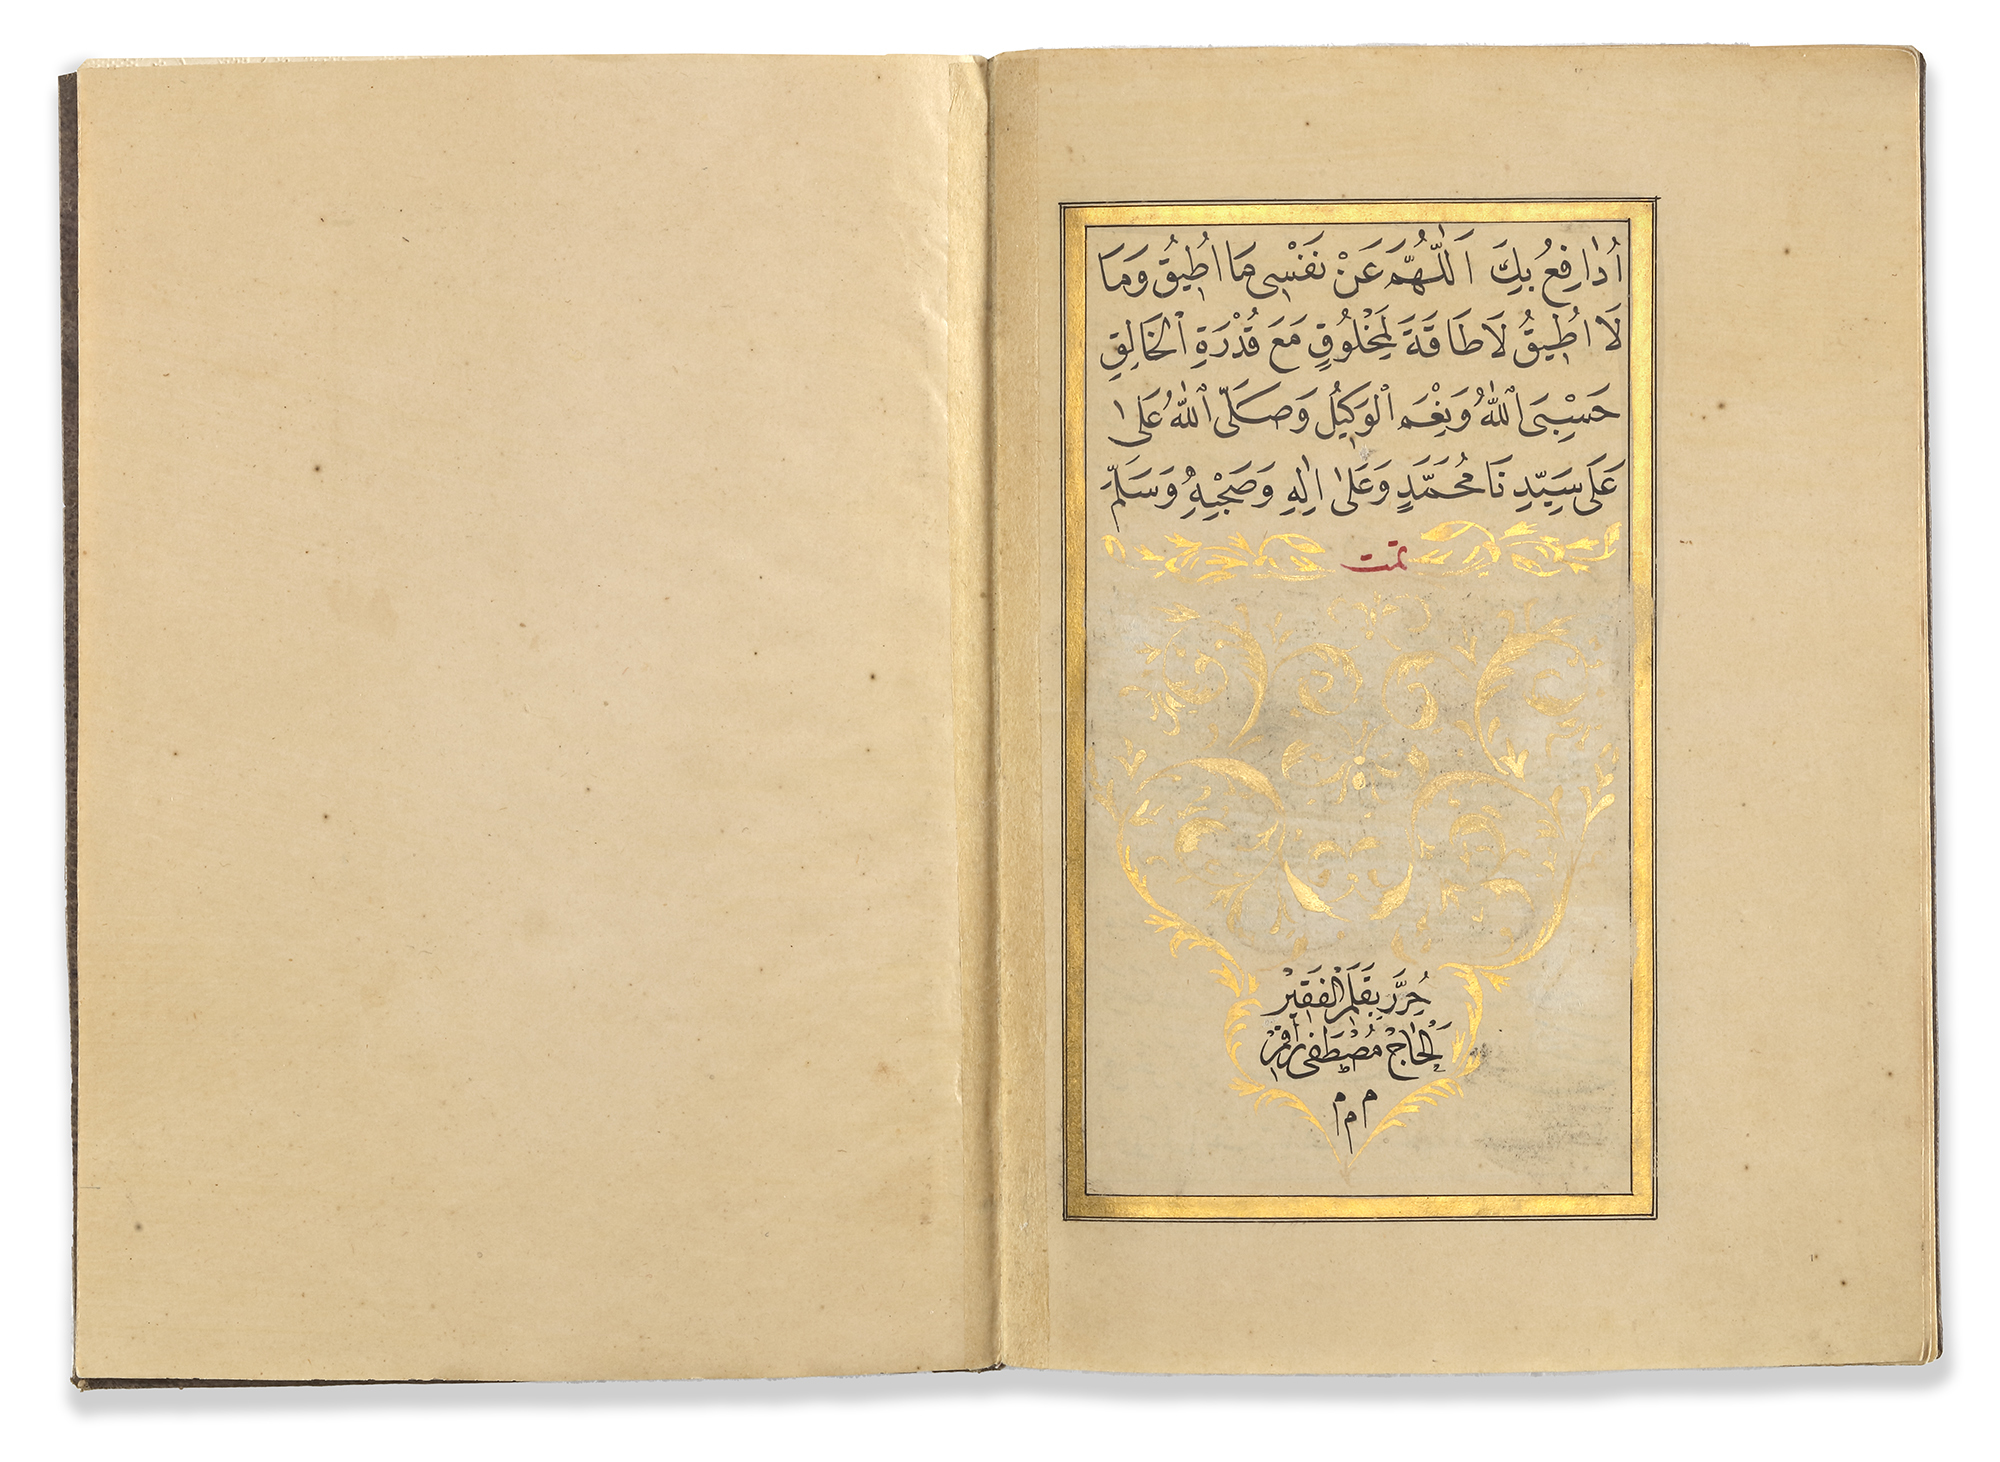 اُدٰا فِعُ بِكَ اَللّٰهُمَّ عَنْ نَفْسِى مَا اُطِيقُ وَمَا
لَا اُطِيقُ لَا طَاقَةَ لِمَخْلُوقٍ مَعَ قُدْرَةِ الْخَالِقِ
حَسْبِىَ اللّٰهُ وَنِعْمَ الْوَكِيلُ وَصَلَّى اللّٰهُ عَلٰى
عَلَى سَيِّدِنَا مُحَمَّدٍ وَعَلٰى اٰلِهِ وَصَحْبِهِ وَسَلَّمَ
تمت
حُرِّرَ بِقَلَمِ الْفَقِيرْ
اَلْحَاجْ مُصْطَفٰى رَاقِمْ
م م م